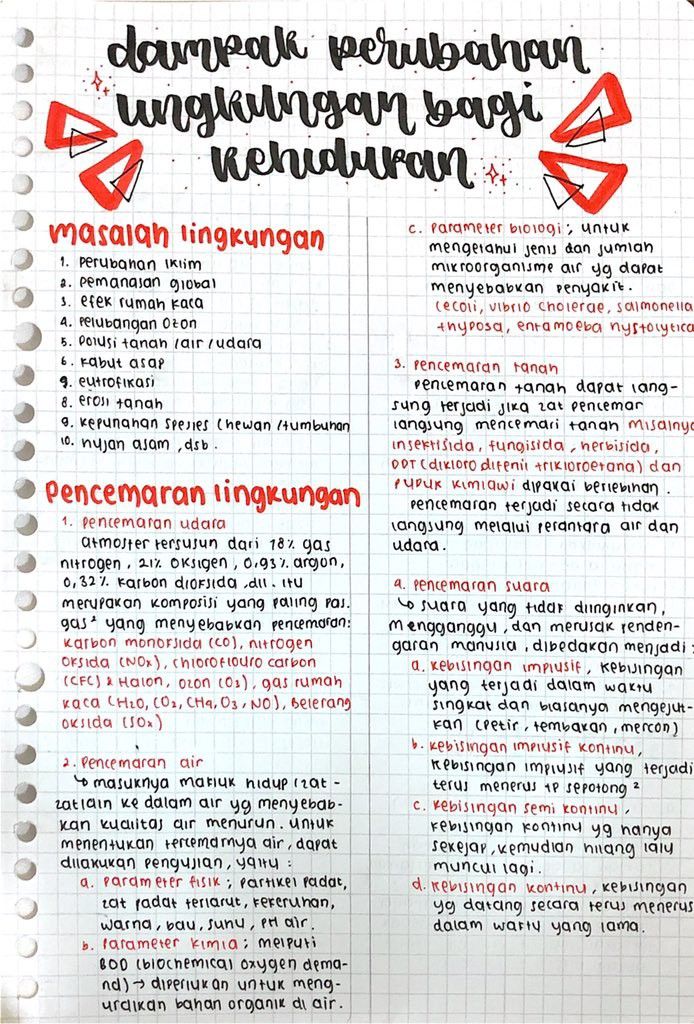 dampak perubahan
lingkungan bagi
kehidupan
masalah lingkungan
1. perubahan iklim
2. pemanasan global
3. efek rumah kaca
4. pelubangan ozon
5. polusi tanah /air /udara
6. kabut asap
7. eutrofikasi
8. erosi tanah
9. kepunahan spesies (hewan /tumbuhan
10. hujan asam , dsb .
pencemaran lingkungan
1. pencemaran udara
atmosfer tersusun dari 78% gas
nitrogen , 21% oksigen , 0,93% argon,
0,32% karbon dioksida .dll . itu
merupakan komposisi yang paling pas.
gas² yang menyebabkan pencemaran:
karbon monoksida (CO), nitrogen
oksida (NOx), chloroflouro carbon
(CFC) & Halon, ozon (O3), gas rumah
kaca (H2O, CO2, CH4, O3, NO), belerang
oksida (SOx)
2. pencemaran air
↳ masuknya makluk hidup /zat -
zat lain ke dalam air yg menyebab-
kan kualitas air menurun. untuk
menentukan tercemarnya air, dapat
dilakukan pengujian, yaitu :
a. parameter fisik ; partikel padat,
zat padat terlarut, kekeruhan,
warna, bau, suhu, PH air.
b. parameter kimia ; meliputi
BOD (biochemical oxygen dema-
nd) → diperlukan untuk meng-
uraikan bahan organik di air.
c. parameter biologi ; untuk
mengetahui jenis dan jumlah
mikroorganisme air yg dapat
menyebabkan penyakit.
(ecoli, vibrio cholerae, salmonella
thyposa, entamoeba hystolytica
3. pencemaran tanah
pencemaran tanah dapat lang-
sung terjadi jika zat pencemar
langsung mencemari tanah misalnya
insektisida, fungisida, herbisida,
DDT (dikloro difenil trikloroetana) dan
pupuk kimiawi dipakai berlebihan.
pencemaran terjadi secara tidak
langsung melalui perantara air dan
udara.
a. pencemaran suara
↳ suara yang tidak diinginkan,
mengganggu, dan merusak penden-
garan manusia, dibedakan menjadi :
a. kebisingan implusif, kebisingan
yang terjadi dalam waktu
singkat dan biasanya mengejut-
kan (petir, tembakan, mercon)
b. kebisingan implusif kontinu,
kebisingan implusif yang terjadi
terus menerus tp sepotong ²
c. kebisingan semi kontinu,
kebisingan kontinu yg hanya
sekejap, kemudian hilang lalu
muncul lagi.
d. kebisingan kontinu, kebisingan
yg datang secara terus menerus
dalam waktu yang lama.